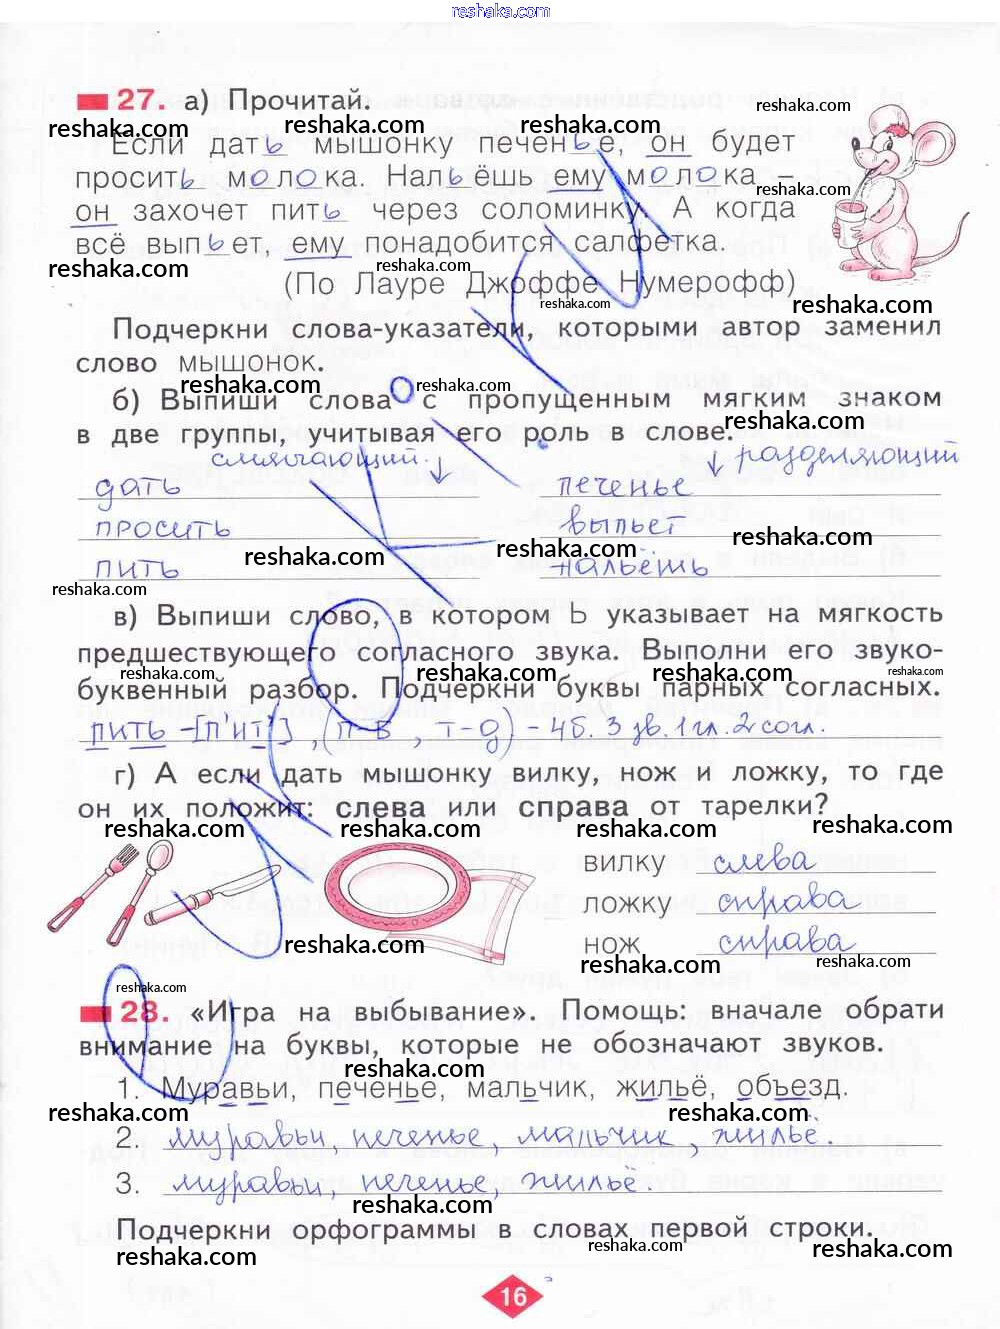 reshaka.com
27. а) Прочитай.
reshaka.com reshaka.com reshaka.com reshaka.com
Если дать мышонку печенье, он будет
просить молока. Нальёшь ему молока –
reshaka.com
он захочет пить через соломинку. А когда
всё выпьет, ему понадобится салфетка.
reshaka.com reshaka.com
(По Лауре Джоффе Нумерофф)
reshaka.com reshaka.com
Подчеркни слова-указатели, которыми автор заменил
слово мышонок.
reshaka.com reshaka.com
б) Выпиши слова с пропущенным мягким знаком
reshaka.com
в две группы, учитывая его роль в слове.
смягчающий разделяющий
дать печенье
просить выпьет
reshaka.com reshaka.com reshaka.com
пить нальёшь
reshaka.com
в) Выпиши слово, в котором Ь указывает на мягкость
предшествующего согласного звука. Выполни его звуко-
reshaka.com reshaka.com reshaka.com reshaka.com
буквенный разбор. Подчеркни буквы парных согласных.
пить – [п'ит'], (п-в, т-д) – 4б. 3 зв. 1 гл. 2 согл.
г) А если дать мышонку вилку, нож и ложку, то где
он их положит: слева или справа от тарелки?
reshaka.com reshaka.com reshaka.com reshaka.com
вилку слева
ложку справа
нож справа
reshaka.com reshaka.com reshaka.com
reshaka.com
28. «Игра на выбывание». Помощь: вначале обрати
внимание на буквы, которые не обозначают звуков.
reshaka.com reshaka.com
1. Муравьи, печенье, мальчик, жильё, объезд.
reshaka.com reshaka.com reshaka.com
2. муравьи, печенье, мальчик, жильё.
reshaka.com reshaka.com
3. муравьи, печенье, жильё.
reshaka.com
Подчеркни орфограммы в словах первой строки.
reshaka.com reshaka.com reshaka.com reshaka.com
16